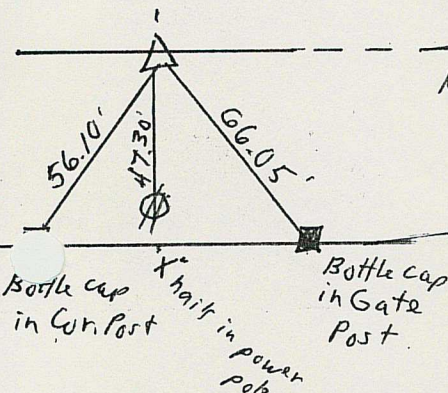 56.10'
47.30'
66.05'
Bottle cap
in Cor. Post
"X" nails in power
pole
Bottle cap
in Gate
Post